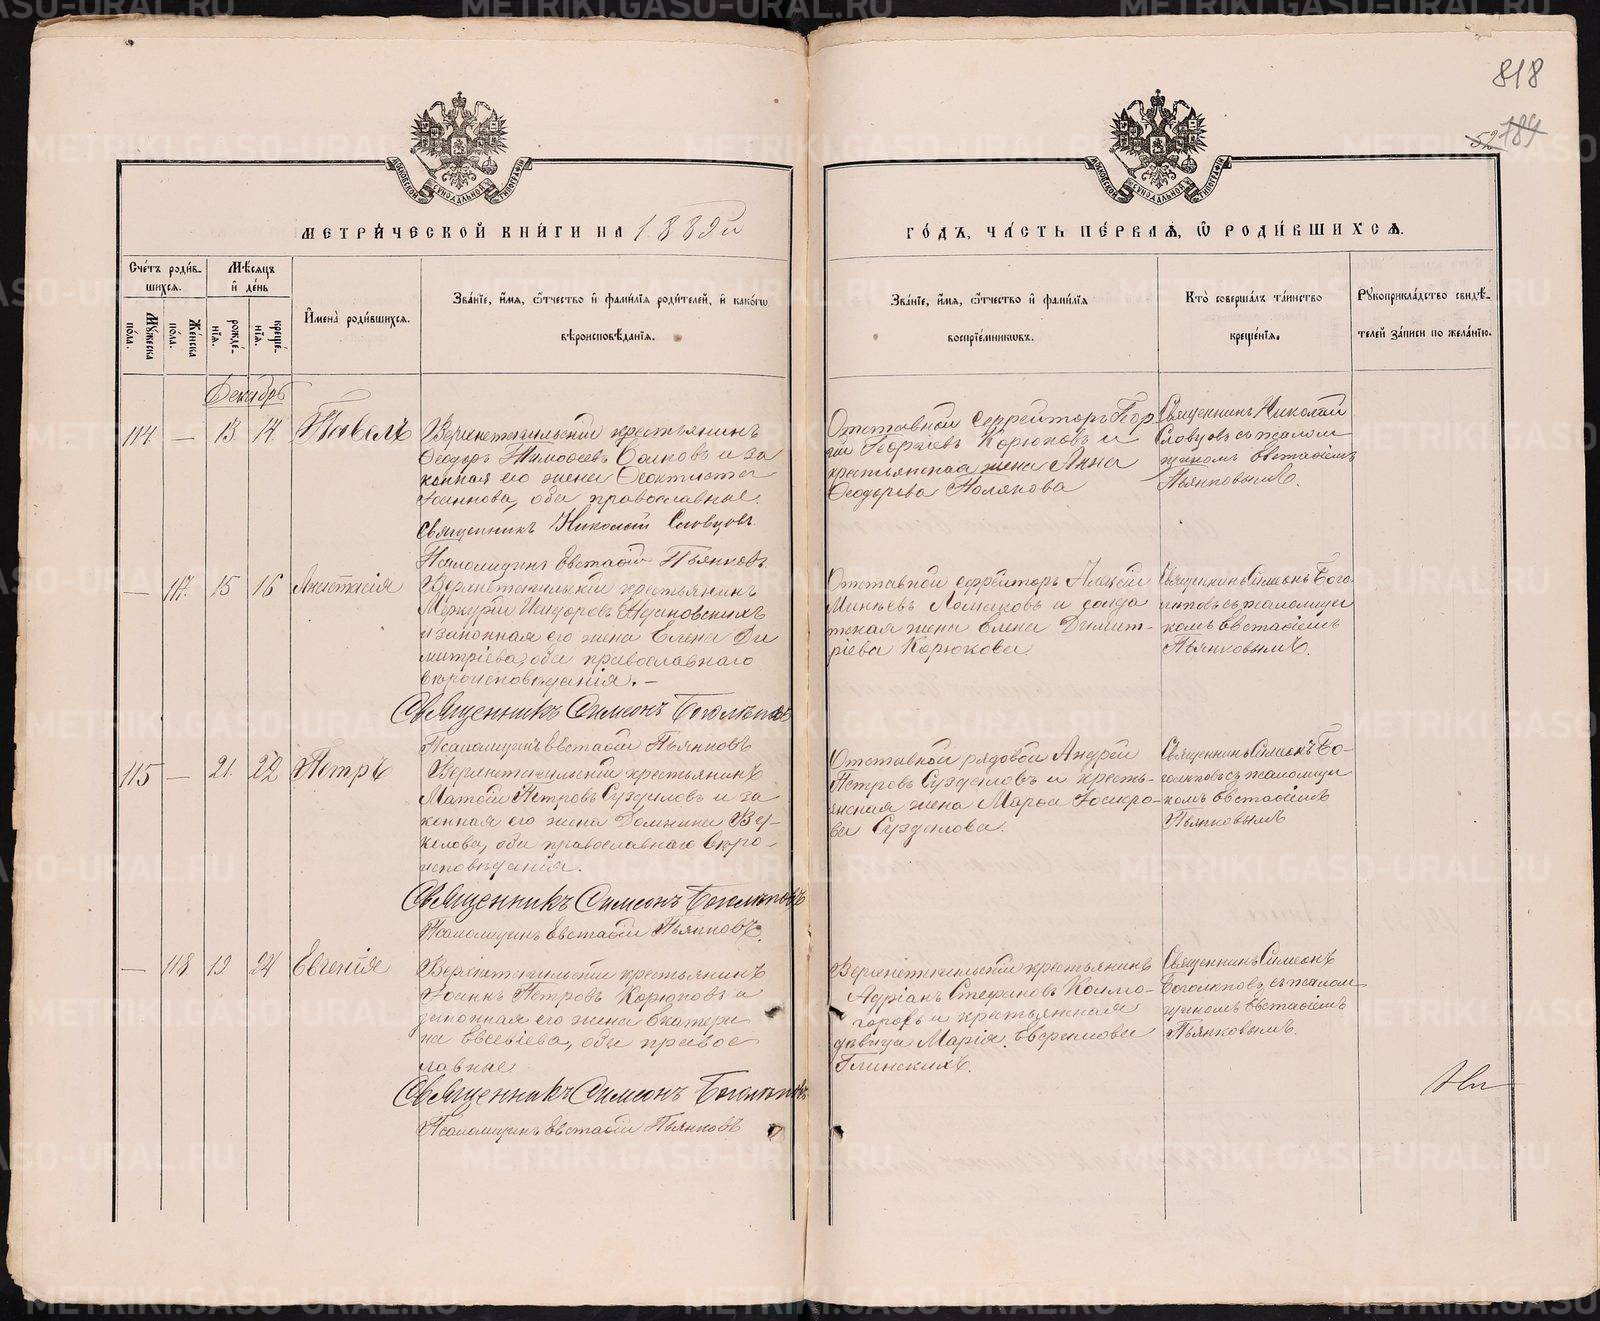 818
52 184
МОСКОВСКОЙ СѴНОДАЛЬНОЙ ТИПОГРАФІИ
МОСКОВСКОЙ СѴНОДАЛЬНОЙ ТИПОГРАФІИ
МЕТРИ́ЧЕСКОЙ КНИ́ГИ НА 1889й
ГО́ДЪ, ЧА́СТЬ ПЕ́РВАѦ, Ѡ РОДИ́ВШИХСѦ.
Сче́тъ роди́в-
шихсѧ.
Мѹ́жеска
по́ла.
Же́нска
по́ла.
Мѣ́сѧцъ
и де́нь
рожде́-
нїѧ.
креще́-
нїѧ.
Имена̀ роди́вшихсѧ.
Зва́нїе, и́мѧ, ѻ́тчество и фами́лїѧ роди́телей, и како́гѡ
вѣроисповѣ́данїѧ.
Зва́нїе, и́мѧ, ѻ́тчество и фами́лїѧ
воспрїе́мникѡвъ.
Кто̀ соверша́лъ та́инство
креще́нїѧ.
Рукоприкла́дство свидѣ́-
телей за́писи по жела́нїю.
Декабрь
114 — 13. 14. Павелъ
Верхнетагильскій крестьянинъ
Ѳеодоръ Тимоѳеевъ и за
конная его жена Ѳеоктиста
Іоаннова, оба православные.
Священникъ Николай Словцовъ.
Псаломщикъ Евстаѳій Пьянковъ
Отставной ефрейторъ
Георгіевъ Корюковъ и
крестьянская жена Анна
Ѳеодорова Полякова
Священникъ Николай
Словцовъ съ псалом
щикомъ Евстаѳіемъ
Пьянковымъ.
— 117. 15 16 Анастасія
Верхнетагильскій крестьянинъ
Меркурій
и законная его жена Елена Ди
митріева, оба православнаго
вѣроисповѣданія. —
Священникъ Симеонъ Боголѣповъ
Псаломщикъ Евстаѳій Пьянковъ
Отставной ефрейторъ Алексій
и солда
тская жена Елена Димит-
ріева Корюкова
Священникъ Симеонъ Бого
лѣповъ съ псаломщи
комъ Евстаѳіемъ
Пьянковымъ.
115 — 21. 22 Петръ
Верхнетагильскій крестьянинъ
Матѳій Петровъ Суздаловъ и за
конная его жена Домника Ву-
колова, оба православнаго вѣро-
исповѣданія.
Священникъ Симеонъ Боголѣповъ
Псаломщикъ Евстаѳій Пьянковъ.
Отставной рядовой Андрей
Петровъ Суздаловъ и кресть-
янская жена Марѳа
Суздалова.
Священникъ Симеонъ Бо-
голѣповъ съ псаломщи
комъ Евстаѳіемъ
Пьянковымъ
— 118 19 24 Евгенія
Верхнетагильскій крестьянинъ
Іоаннъ Петровъ Корюковъ и
законная его жена Екатери
на Евсевіева, оба правос
лавные
Священникъ Симеонъ Боголѣповъ
Псаломщикъ Евстаѳій Пьянковъ
Верхнетагильскій крестьянинъ
Адріанъ Стефановъ Колмо-
горовъ и крестьянская
дѣвица Марія Евфимова
Глинскихъ.
Священникъ Симеонъ
Боголѣповъ съ псалом
щикомъ Евстаѳіемъ
Пьянковымъ.
METRIKI.GASO-URAL.RU